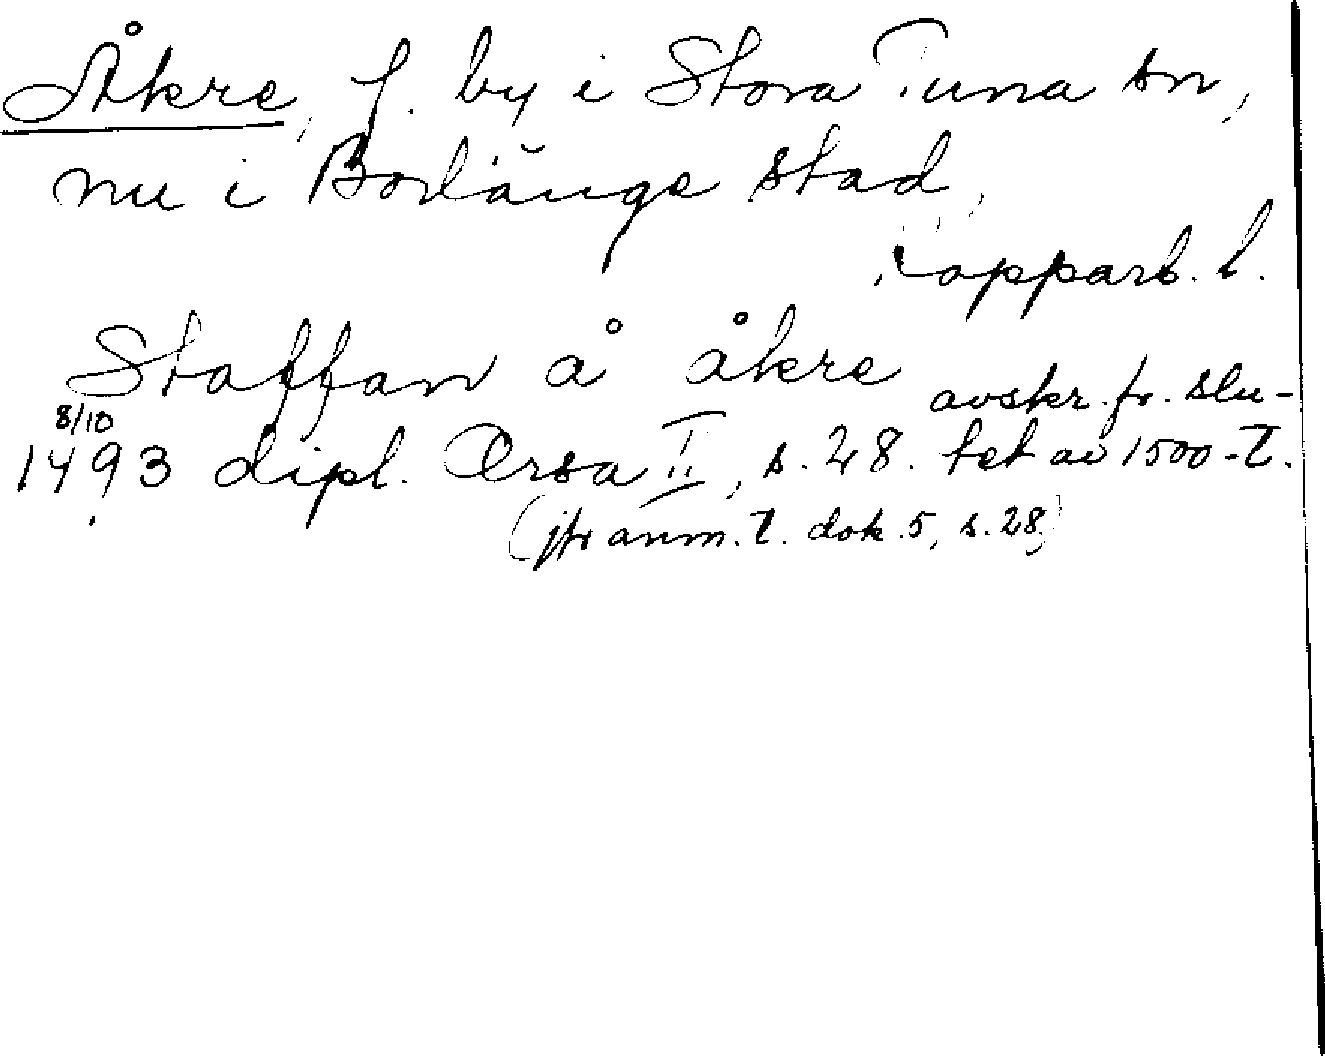 Åkre, f. by i Stora Tuna sn,
nu i Borlänge stad,
Kopparb. l.
Staffan å åkre avskr. fr. slu-
8/10
1493 dipl. Orsa II, s. 28. tet av 1500-t.
(jfr anm. t. dok. 5, s. 28)